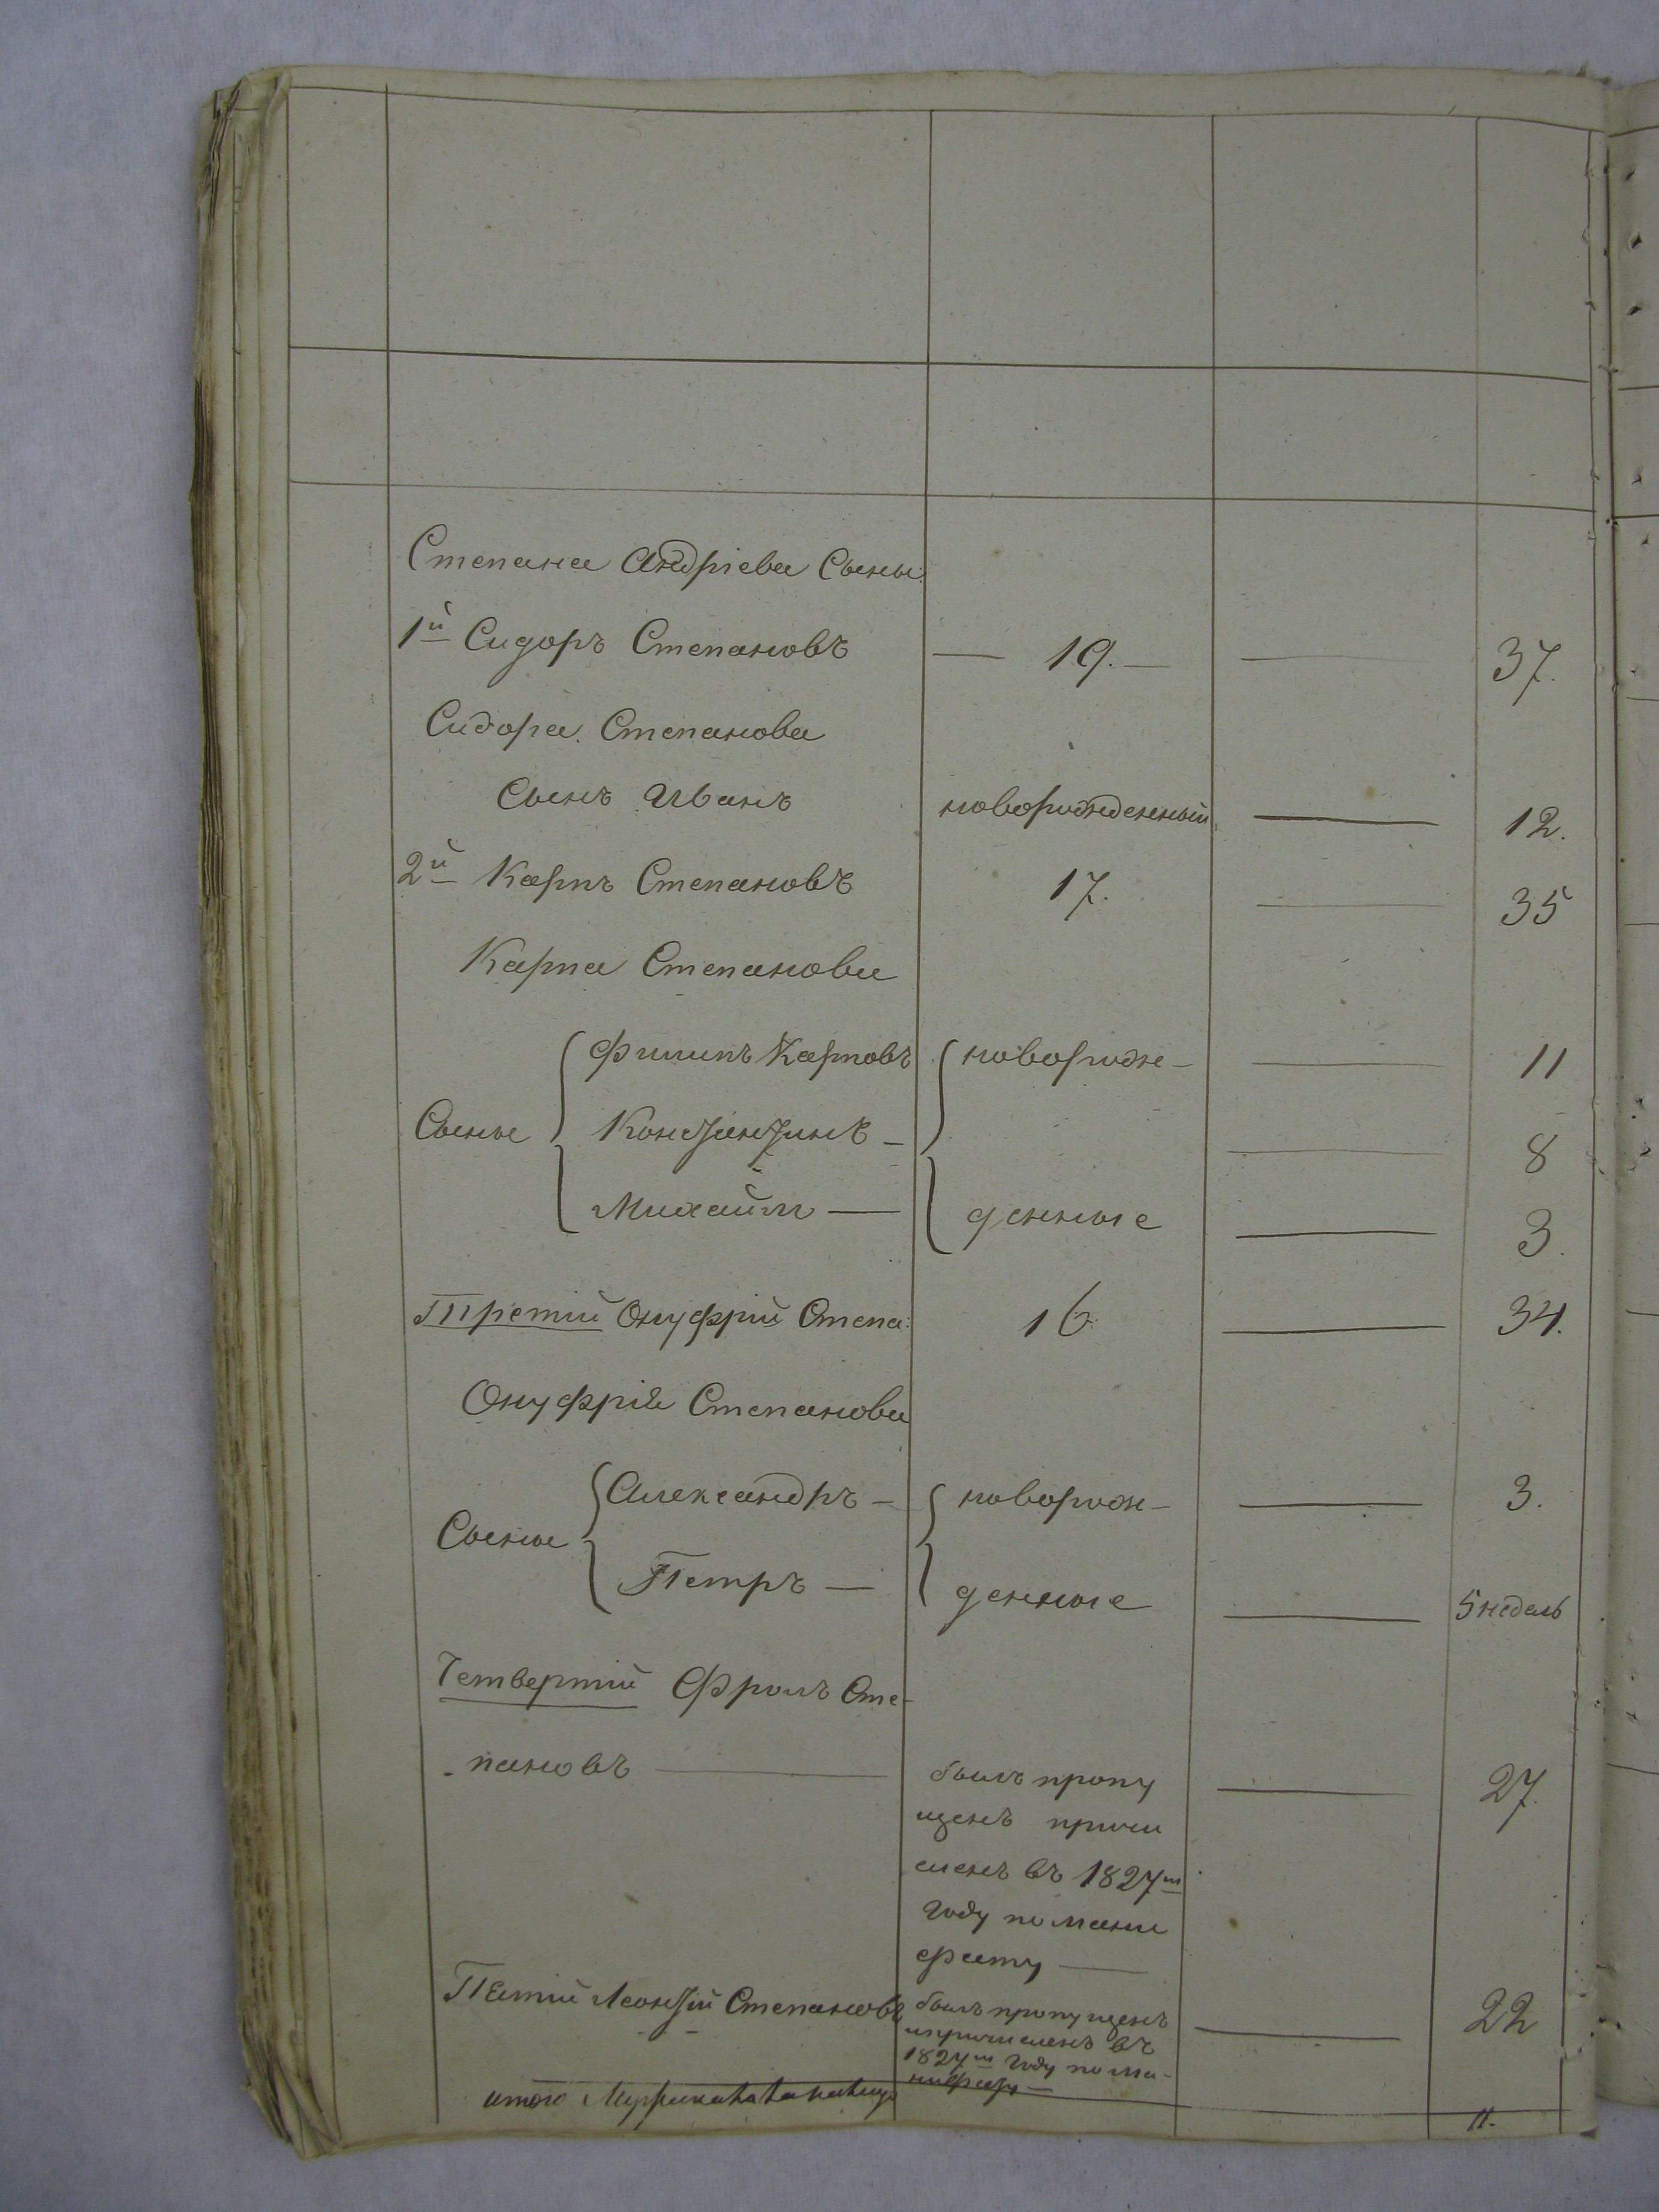 Степана Андріева Сыны:
1й Сидоръ Степановъ — 19. — — 37.
Сидора Степанова
Сынъ Иванъ новорожденный — 12.
2й Карпъ Степановъ 17. — 35
Карпа Степанова
Филипъ Карповъ новорож- — 11
Сыны Константинъ — — 8
Михайло — денные — 3.
Третий Онуфрій Степа: 16 — 34.
Онуфрія Степанова
Александръ — новорож- — 3.
Сыны
Петръ — денные — 5 недель
Четвертий Фролъ Сте-
-пановъ — былъ пропу — 27.
щенъ причи
сленъ въ 1827м
году по мани
фесту —
Пятий Леонтій Степановъ былъ пропущенъ — 22
и причисленъ въ
1827м году по ма-
нифесту —
итого Мужеска 11.